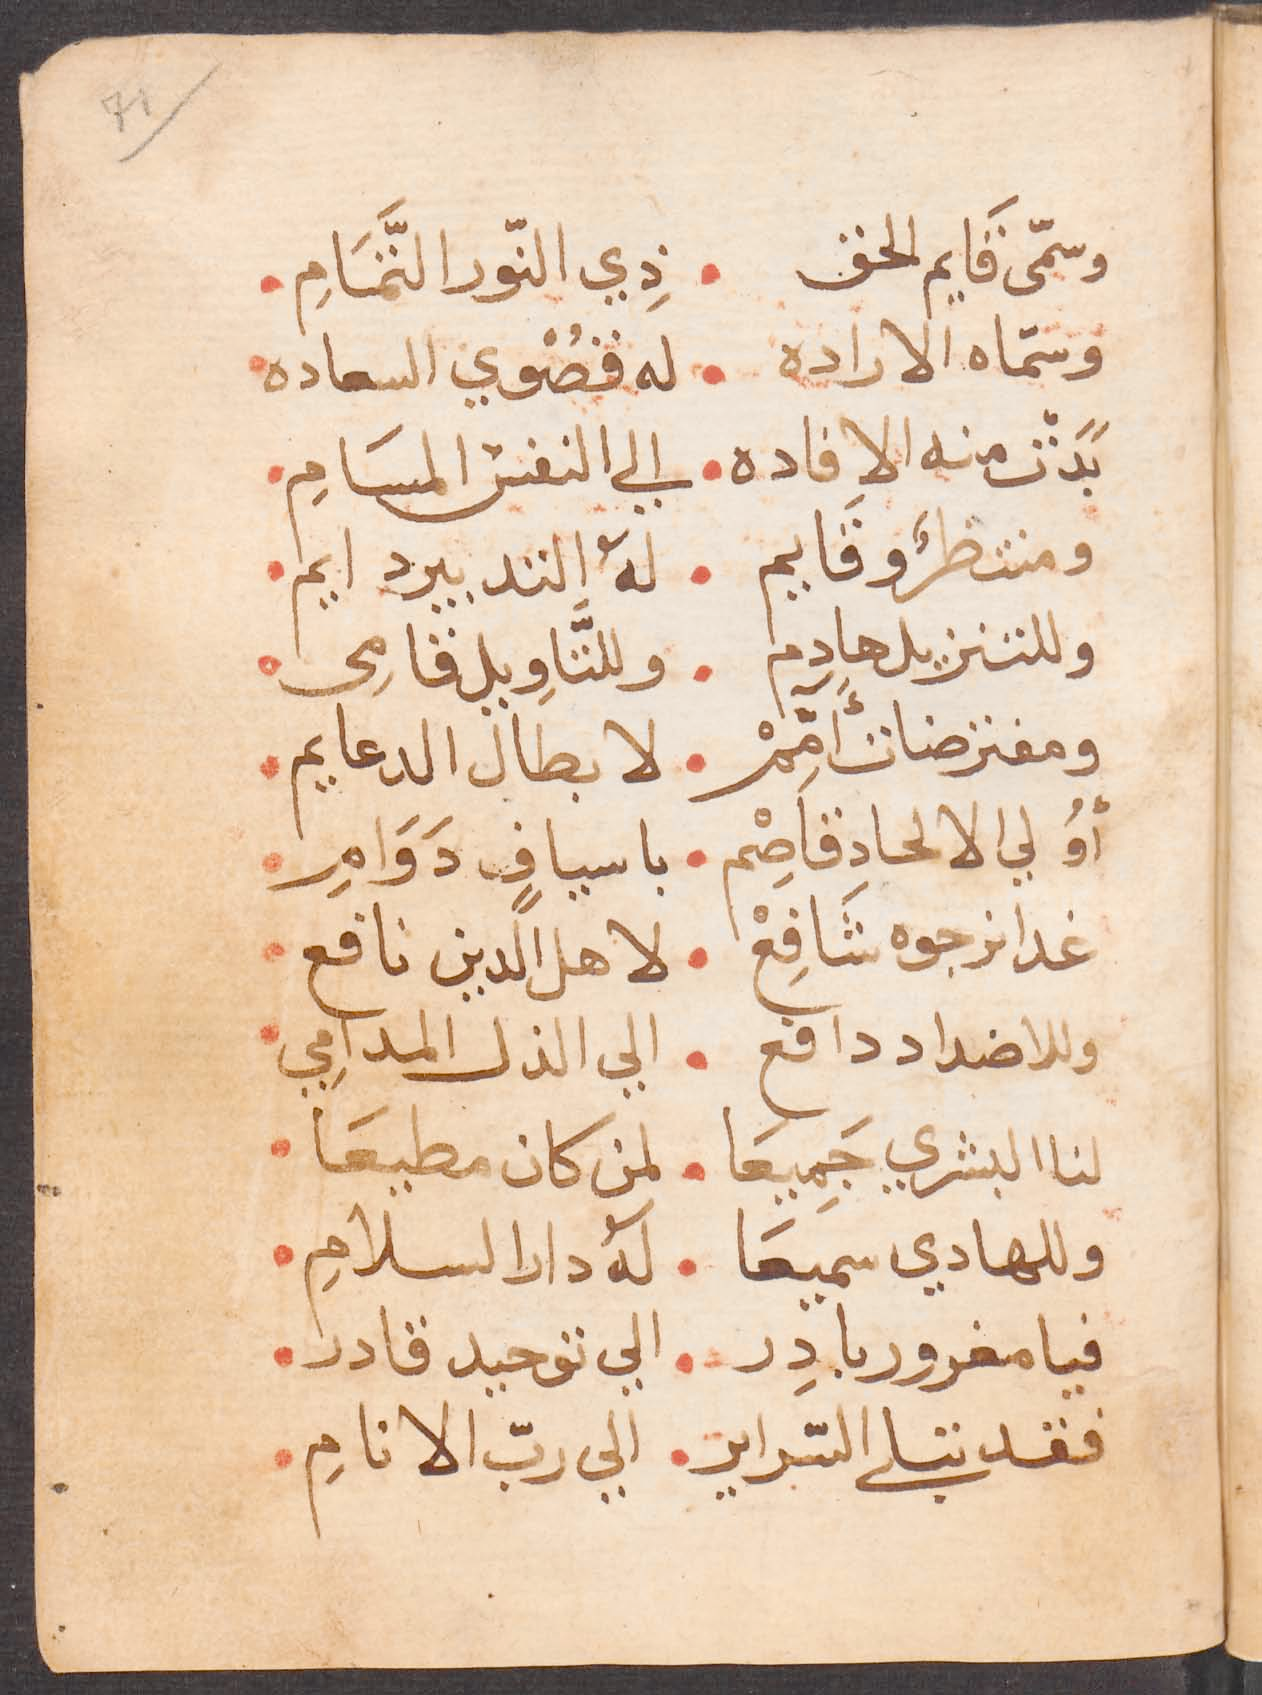 71
وسمّى قَايم الحق • ذِي النّور التَّمَامِ •
وسمّاه الاراده • له قصُوي السعاده •
بَدَتْ منه الاِفاده • الي النفس المسَامِ •
ومنتظرٌ وقَايم • لهُ التدبير دايم •
وللتنزيل هادِم • وللتَّاوِيل قامِى •
ومفترضاتٌ اَمِّمْر • لابطال الدعايم •
أوُلي الالحادِ قاصِمْ • باسيافٍ دَوَامِر •
غدا نرجوه شَافِعْ • لاهل الدين نافع •
وللاضداد دافع • الي الذل المدامِي •
لنا البشري جَمِيعَا • لمن كان مطيعَا •
وللهادي سميعَا • لهُ دار السلامِ •
فيا مغرور بادِر • الي توحيد قادر •
فقد تبلي السّراير • الي ربّ الانامِ •